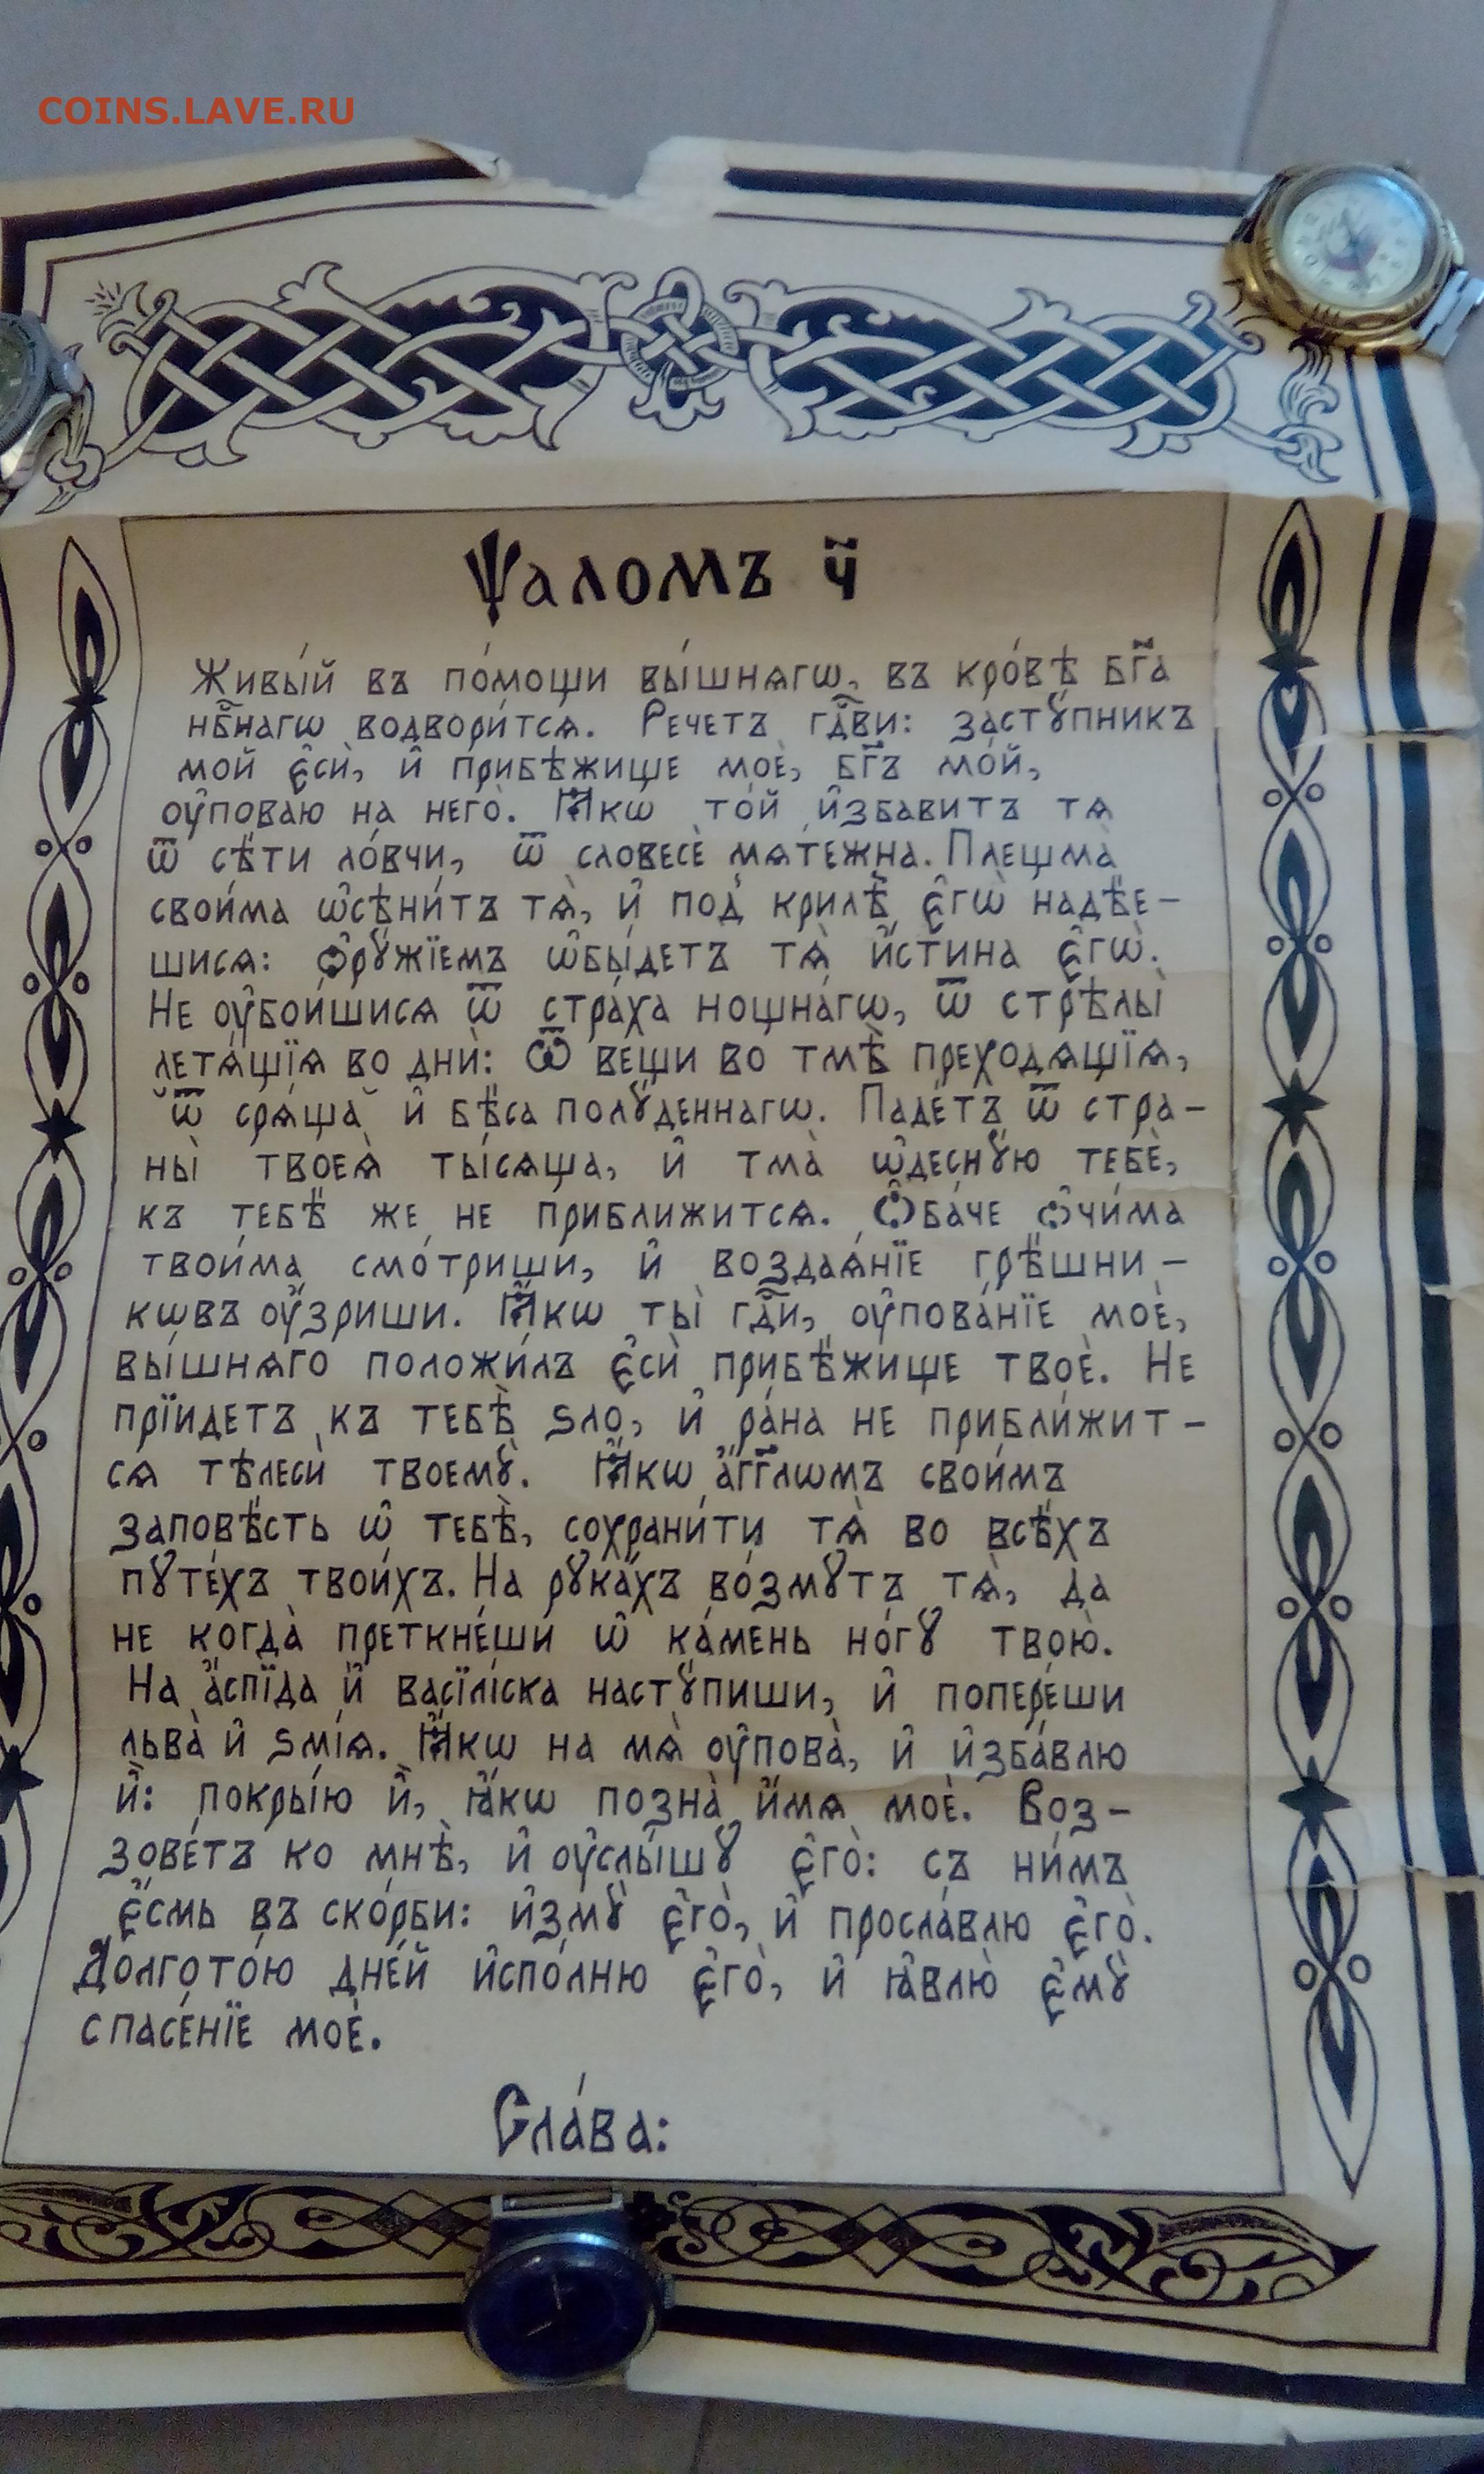 COINS.LAVE.RU
Ѱаломъ ч҃
Живы́й въ по́мощи вы́шнѧгѡ, въ кро́вѣ бг҃а
нб҃нагѡ водвори́тсѧ. Речетъ гдⷭ҇ви: застꙋ́пникъ
мой є҆сѝ, и҆ прибѣ́жище моѐ, бг҃ъ мо́й,
оу҆пова́ю на него̀. Ꙗ҆́кѡ то́й и҆збавитъ тѧ
ѿ сѣ́ти ло́вчи, ѿ словесѐ мѧте́жна. Плещма̀
свои́ма ѡ҆сѣни́тъ тѧ̀, и҆ под̾ крилѣ̀ є҆гѡ̀ надѣ́е-
шисѧ: ѻ҆рꙋ́жїемъ ѡ҆бы́детъ тѧ̀ и҆́стина є҆гѡ̀.
Не оу҆бои́шисѧ ѿ стра́ха нощна́гѡ, ѿ стрѣлы̀
летѧ́щїѧ во днѝ: Ѿ ве́щи во тмѣ̀ преходѧ́щїѧ,
ѿ срѧ́ща и҆ бѣ́са полꙋ́деннагѡ. Паде́тъ ѿ стра-
ны̀ твоеѧ̀ ты́сѧща, и҆ тма̀ ѡ҆деснꙋ́ю тебѐ,
къ тебѣ́ же не прибли́житсѧ. Ѻ҆ба́че ѻ҆чи́ма
твои́ма смо́триши, и҆ воздаѧ́нїе грѣ́шни-
кѡвъ оу҆́зриши. Ꙗ҆́кѡ ты̀ гдⷭ҇и, оу҆пова́нїе моѐ,
вы́шнѧго положи́лъ є҆сѝ прибѣ́жище твоѐ. Не
прїидетъ къ тебѣ̀ ѕло, и҆ ра́на не прибли́жит-
сѧ тѣлесѝ твоемꙋ̀. Ꙗ҆́кѡ а҆́гг҃лѡмъ свои̑мъ
заповѣ́сть ѡ҆ тебѣ̀, сохрани́ти тѧ̀ во всѣ́хъ
пꙋте́хъ твои́хъ. На рꙋка́хъ во́змꙋтъ тѧ̀, да
не когда̀ преткне́ши ѡ҆ ка́мень но́гꙋ твою̀.
На а҆́спїда и҆ васїлі́ска настꙋ́пиши, и҆ попере́ши
льва̀ и҆ ѕмі́ѧ. Ꙗ҆́кѡ на мѧ̀ оу҆пова̀, и҆ и҆зба́влю
и҆̀: покры́ю и҆̀, ꙗ҆́кѡ позна̀ и҆́мѧ моѐ. Воз-
зове́тъ ко мнѣ̀, и҆ оу҆слы́шꙋ є҆го̀: съ ни́мъ
є҆́смь въ ско́рби: и҆змꙋ̀ є҆го̀, и҆ просла́влю є҆го̀.
Долгото́ю дне́й и҆спо́лню є҆го̀, и҆ ꙗ҆влю̀ є҆мꙋ̀
спасе́нїе моѐ.
Сла́ва: